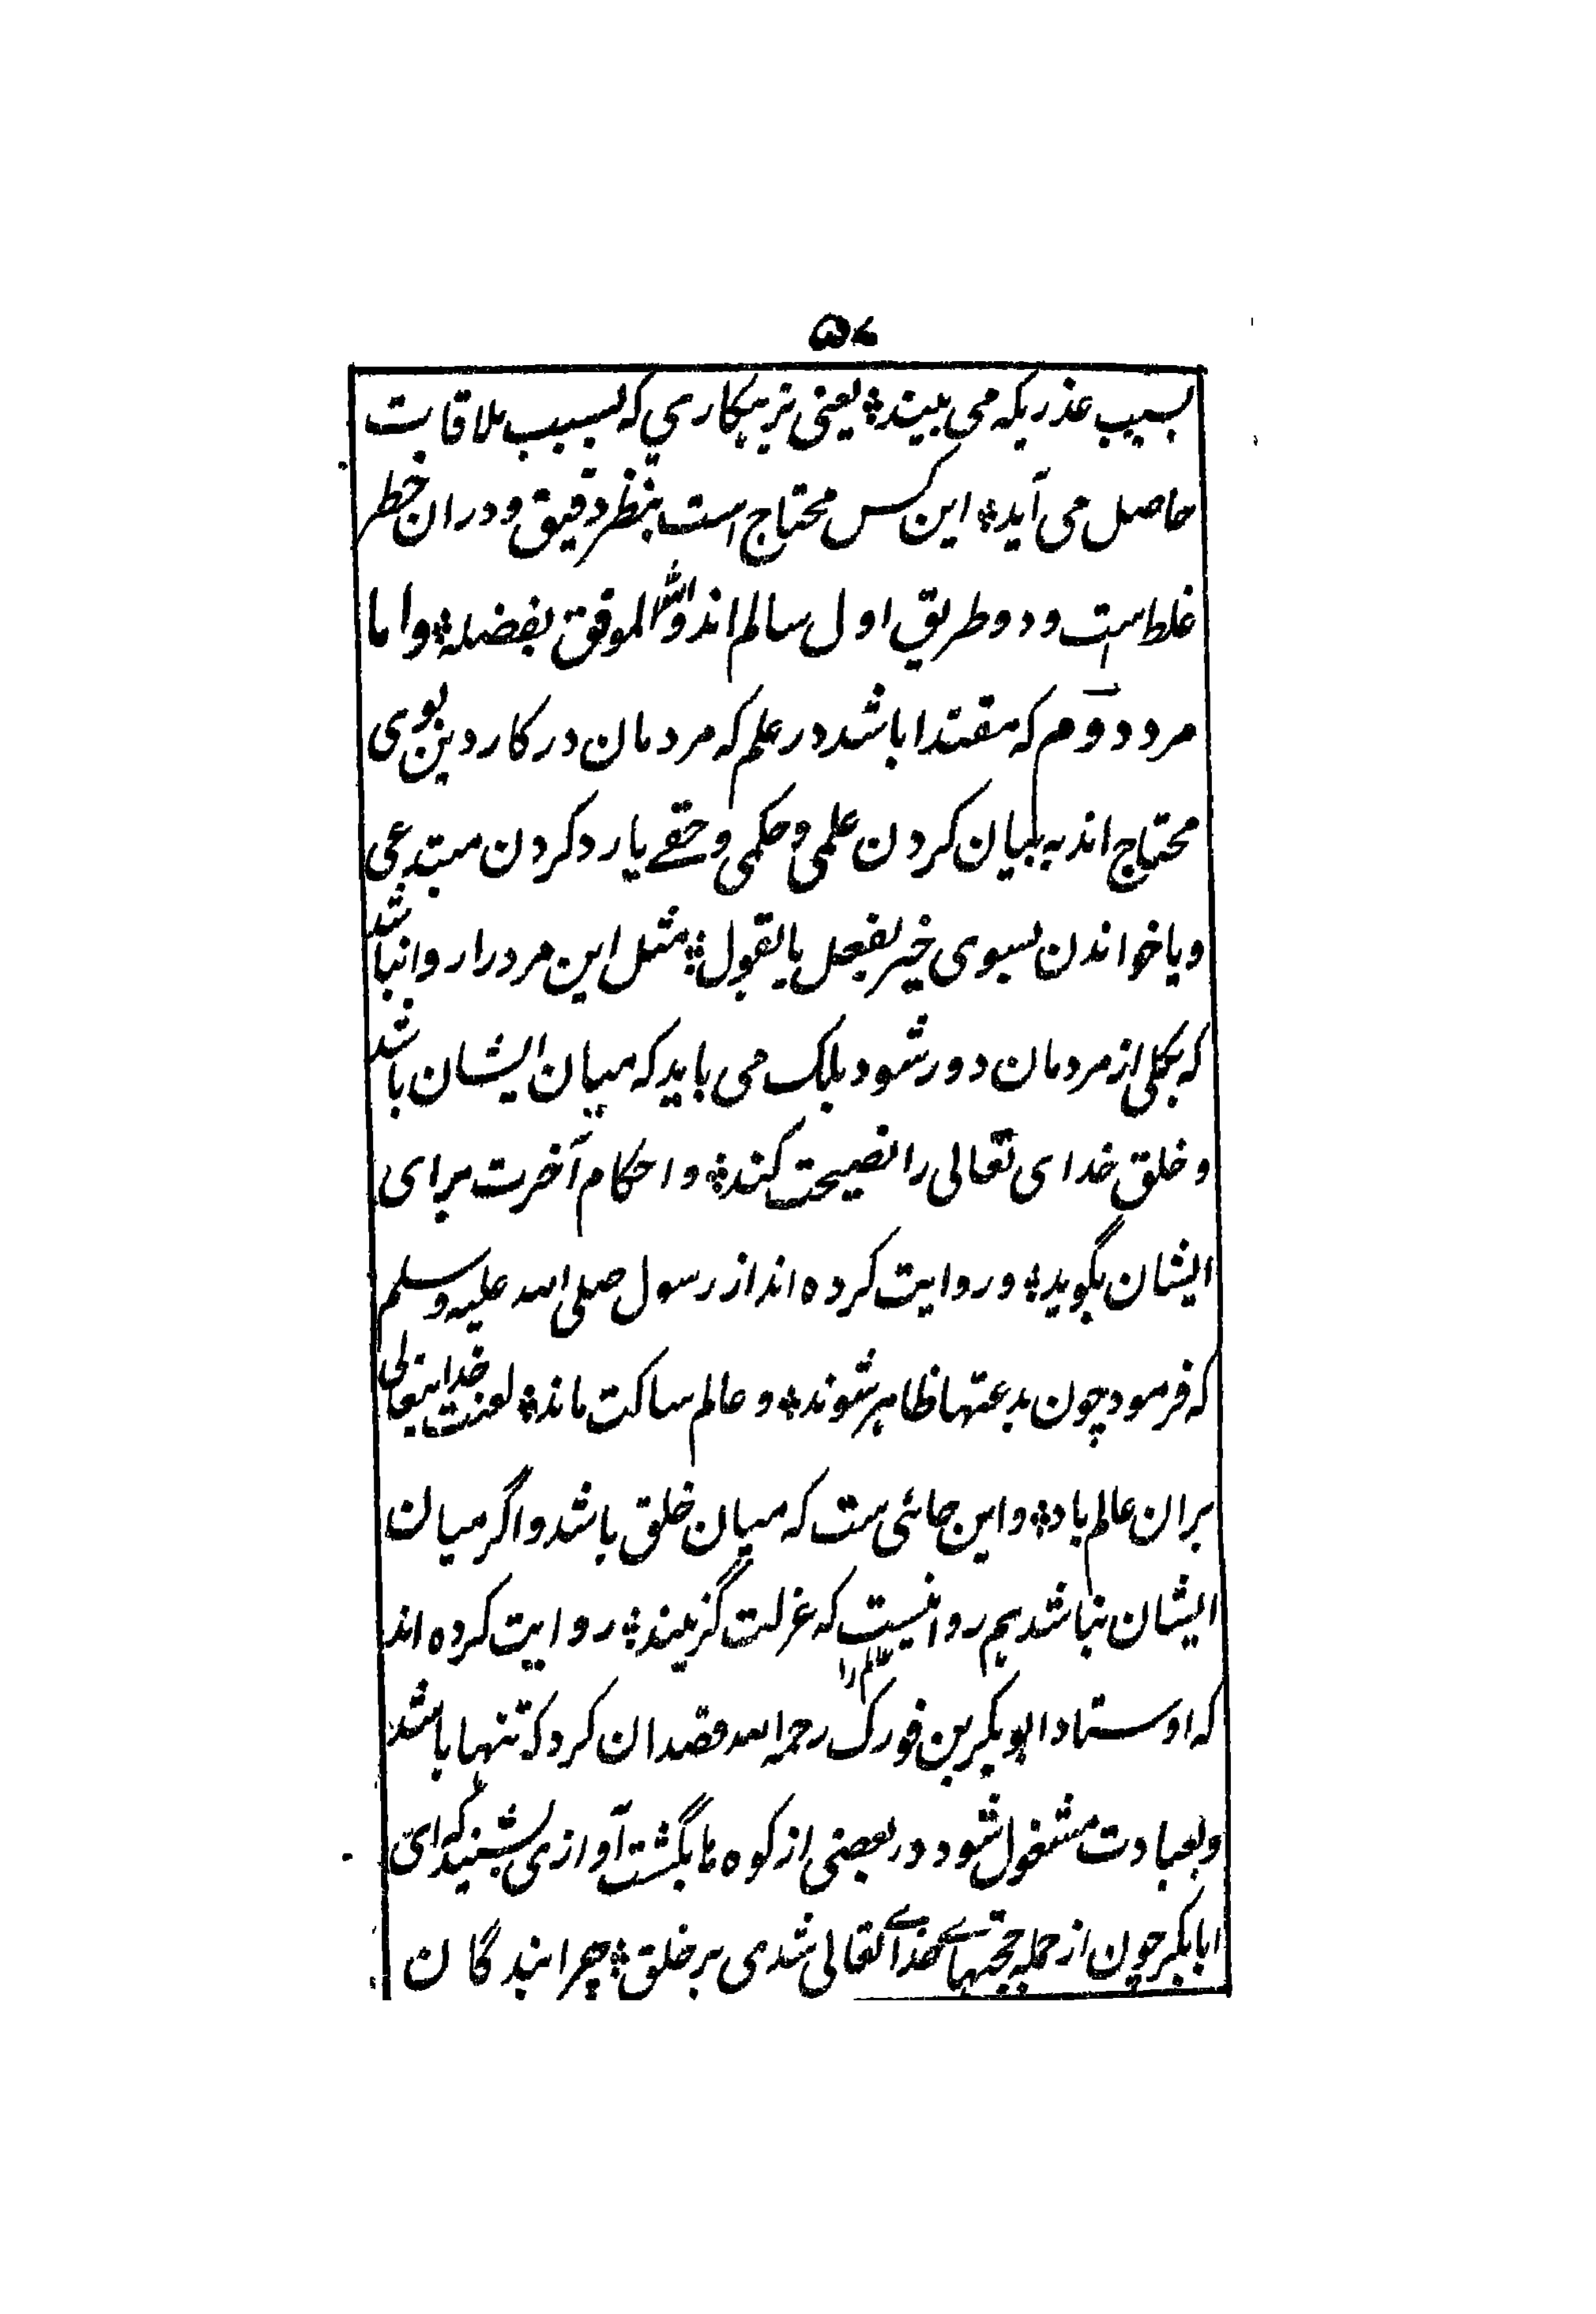 ۵۷
بسبب عذریکه می بیند؞ یعنی بزهکاری که بسبب ملاقات
حاصل می آید؞ این کس محتاج است بنظر دقیق و دران خطر
غلط است و دو طریق اول سالم اند والله الموفق بفضله؞ واما
مرد دوم که مقتدا باشد در علم که مردمان در کار دین بوی
محتاج اند به بیان کردن علمی و حکمی و حقے یا رد کردن مبتدعی
و یا خواندن بسوی خیر بفعل یا بقول؞ مثل این مرد را روا نباشد
که بکلی از مردمان دور شود بلک می باید که میان ایشان باشد
و خلق خدای تعالی را نصیحت کند؞ و احکام آخرت برای
ایشان بگوید؞ و روایت کرده اند از رسول صلی الله علیه وسلم
که فرمود چون بدعتها ظاهر شوند؞ و عالم ساکت ماند؞ لعنت خدایتعالی
بران عالم باد؞ و این جائی ست که میان خلق باشد و اگر میان
ایشان نباشد هم روا نیست که عزلت گزیند؞ روایت کرده اند
که اوستاد ابو بکر بن فورک رحمه الله قصد ان کرد که تنها باشد
و بعبادت مشغول شود در بعضی از کوه ها بگشت آوازی بشنید که ای
ابا بکر چون از جمله حجتهاے خداے تعالی شدی بر خلق؞ چرا بندگان